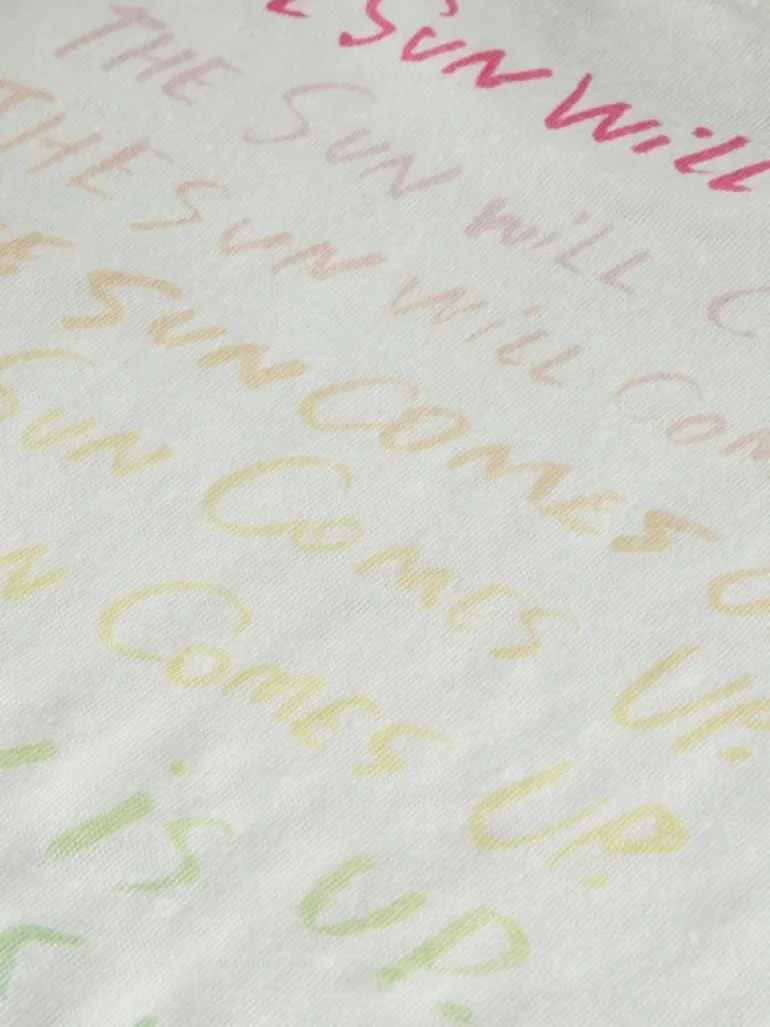 E SUN Will
THE SUN Will C
THE SUN Will COM
E SUN COMES U
SUN COMES UP.
N COMES UP.
is UP.